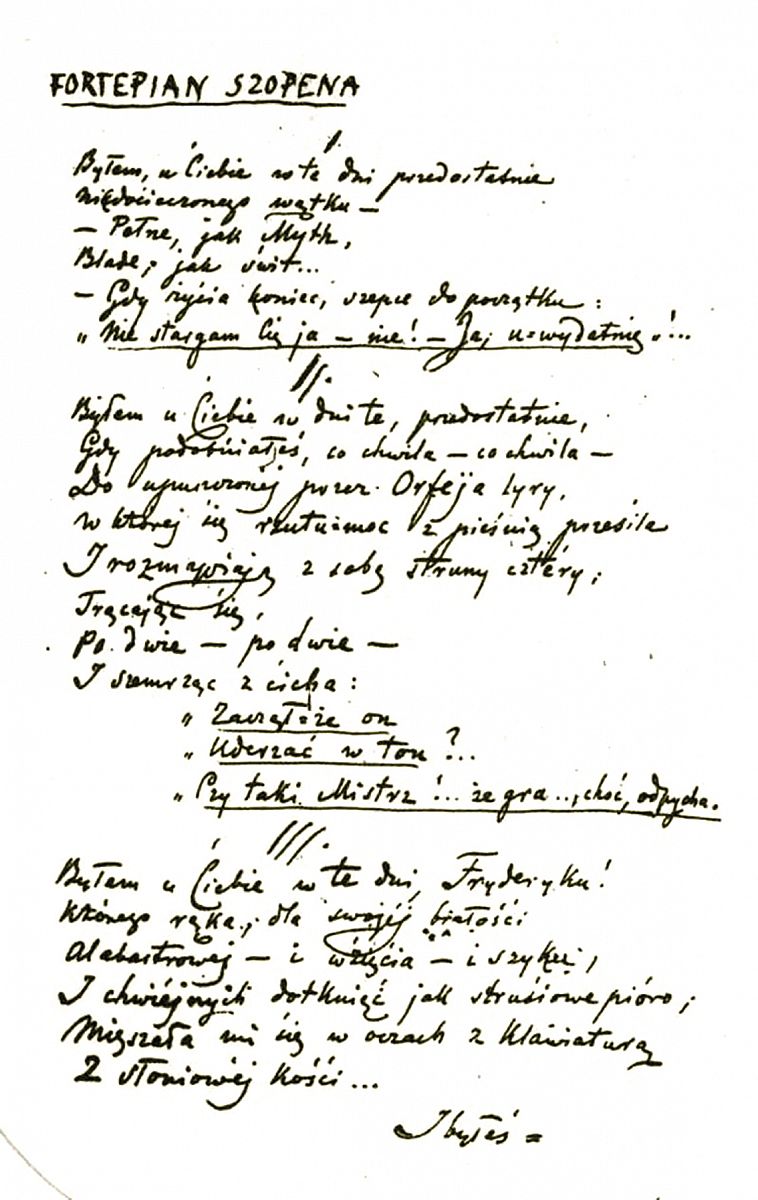 FORTEPIAN SZOPENA
I.
Byłem, u Ciebie w te dni przedostatnie
Niedocieczonego wątku —
— Pełne, jak Myth,
Blade, jak świt...
— Gdy życia koniec, szepce do początku:
„Nie stargam Cię ja — nie! — Ja, u=wydatnię"!...
II.
Byłem u Ciebie w dni te, przedostatnie,
Gdy podobniałeś, co chwila — co chwila —
Do upuszczonej przez Orfeja lyry,
W której się rzutu=moc z pieśnią przesila
I rozmawiają z sobą struny cztéry;
Trącając się,
Po dwie — po dwie —
I szemrząc z cicha:
„Zaczął=że on
„Uderzać w ton?...
„Czy taki Mistrz!... że gra.., choć, odpycha.
III.
Byłem u Ciebie w te dni, Fryderyku!
Którego ręka, dla swojéj białości
Alabastrowéj — i wzięcia — i szyku,
I chwiéjnych dotknięć jak strusiowe pióro;
Mięszała mi się w oczach z klawiaturą
Z słoniowéj kości...
I byłeś =